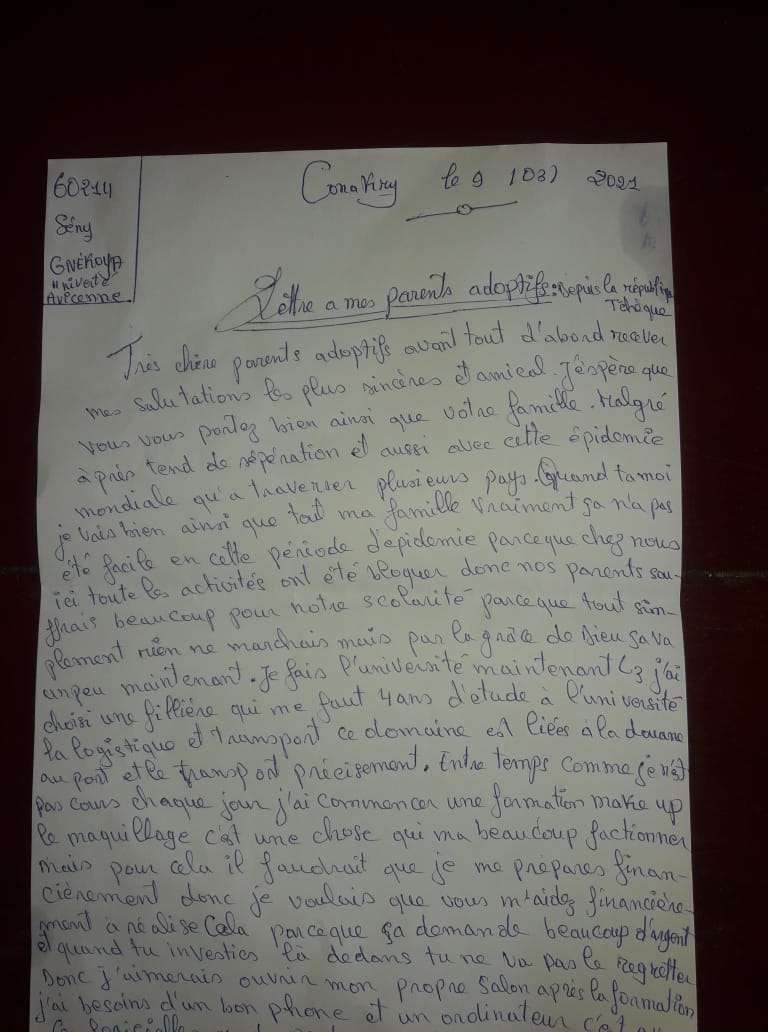 60214
Sény
GNÉKOYA
Univeité
Avicenne.
Conakry le 9 /03/ 2021
Lettre a mes parents adoptifs: Depuis la républiq
Tchèque
Très chère parents adoptifs avant tout d'abord recever
mes salutations les plus sincères et amical. J'éspère que
vous vous portez bien ainsi que votre famille. Malgré
àprés tend de sépération et aussi avec cette épidemie
mondiale qu'a traverser plusieurs pays. Quand ta moi
je vais bien ainsi que tout ma famille vraiment ça n'a pas
été facile en cette période d'epidemie parceque chez nous
ici toute les activités ont été bloquer donc nos parents sou-
ffrais beaucoup pour notre scolarité parceque tout sim-
plement rien ne marchais mais par la grâce de Dieu sa va
unpeu maintenant. Je fais l'université maintenant L3 j'ai
choisi une fillière qui me faut 4ans d'etude à l'université
la logistique et transport ce domaine est liées à la douane
au port et le transport précisement. Entre temps comme je n'ai
pas cours chaque jour j'ai commencer une formation make up
le maquillage c'est une chose qui ma beaucoup factionner
mais pour cela il faudrait que je me prépares finan-
cièrement donc je voulais que vous m'aidez financière-
ment à réalise cela parceque ça demande beaucoup d'argent
et quand tu investies là dedans tu ne va pas le regretter
Donc j'aimerais ouvrir mon propre salon après la formation
j'ai besoins d'un bon phone et un ordinateur c'est